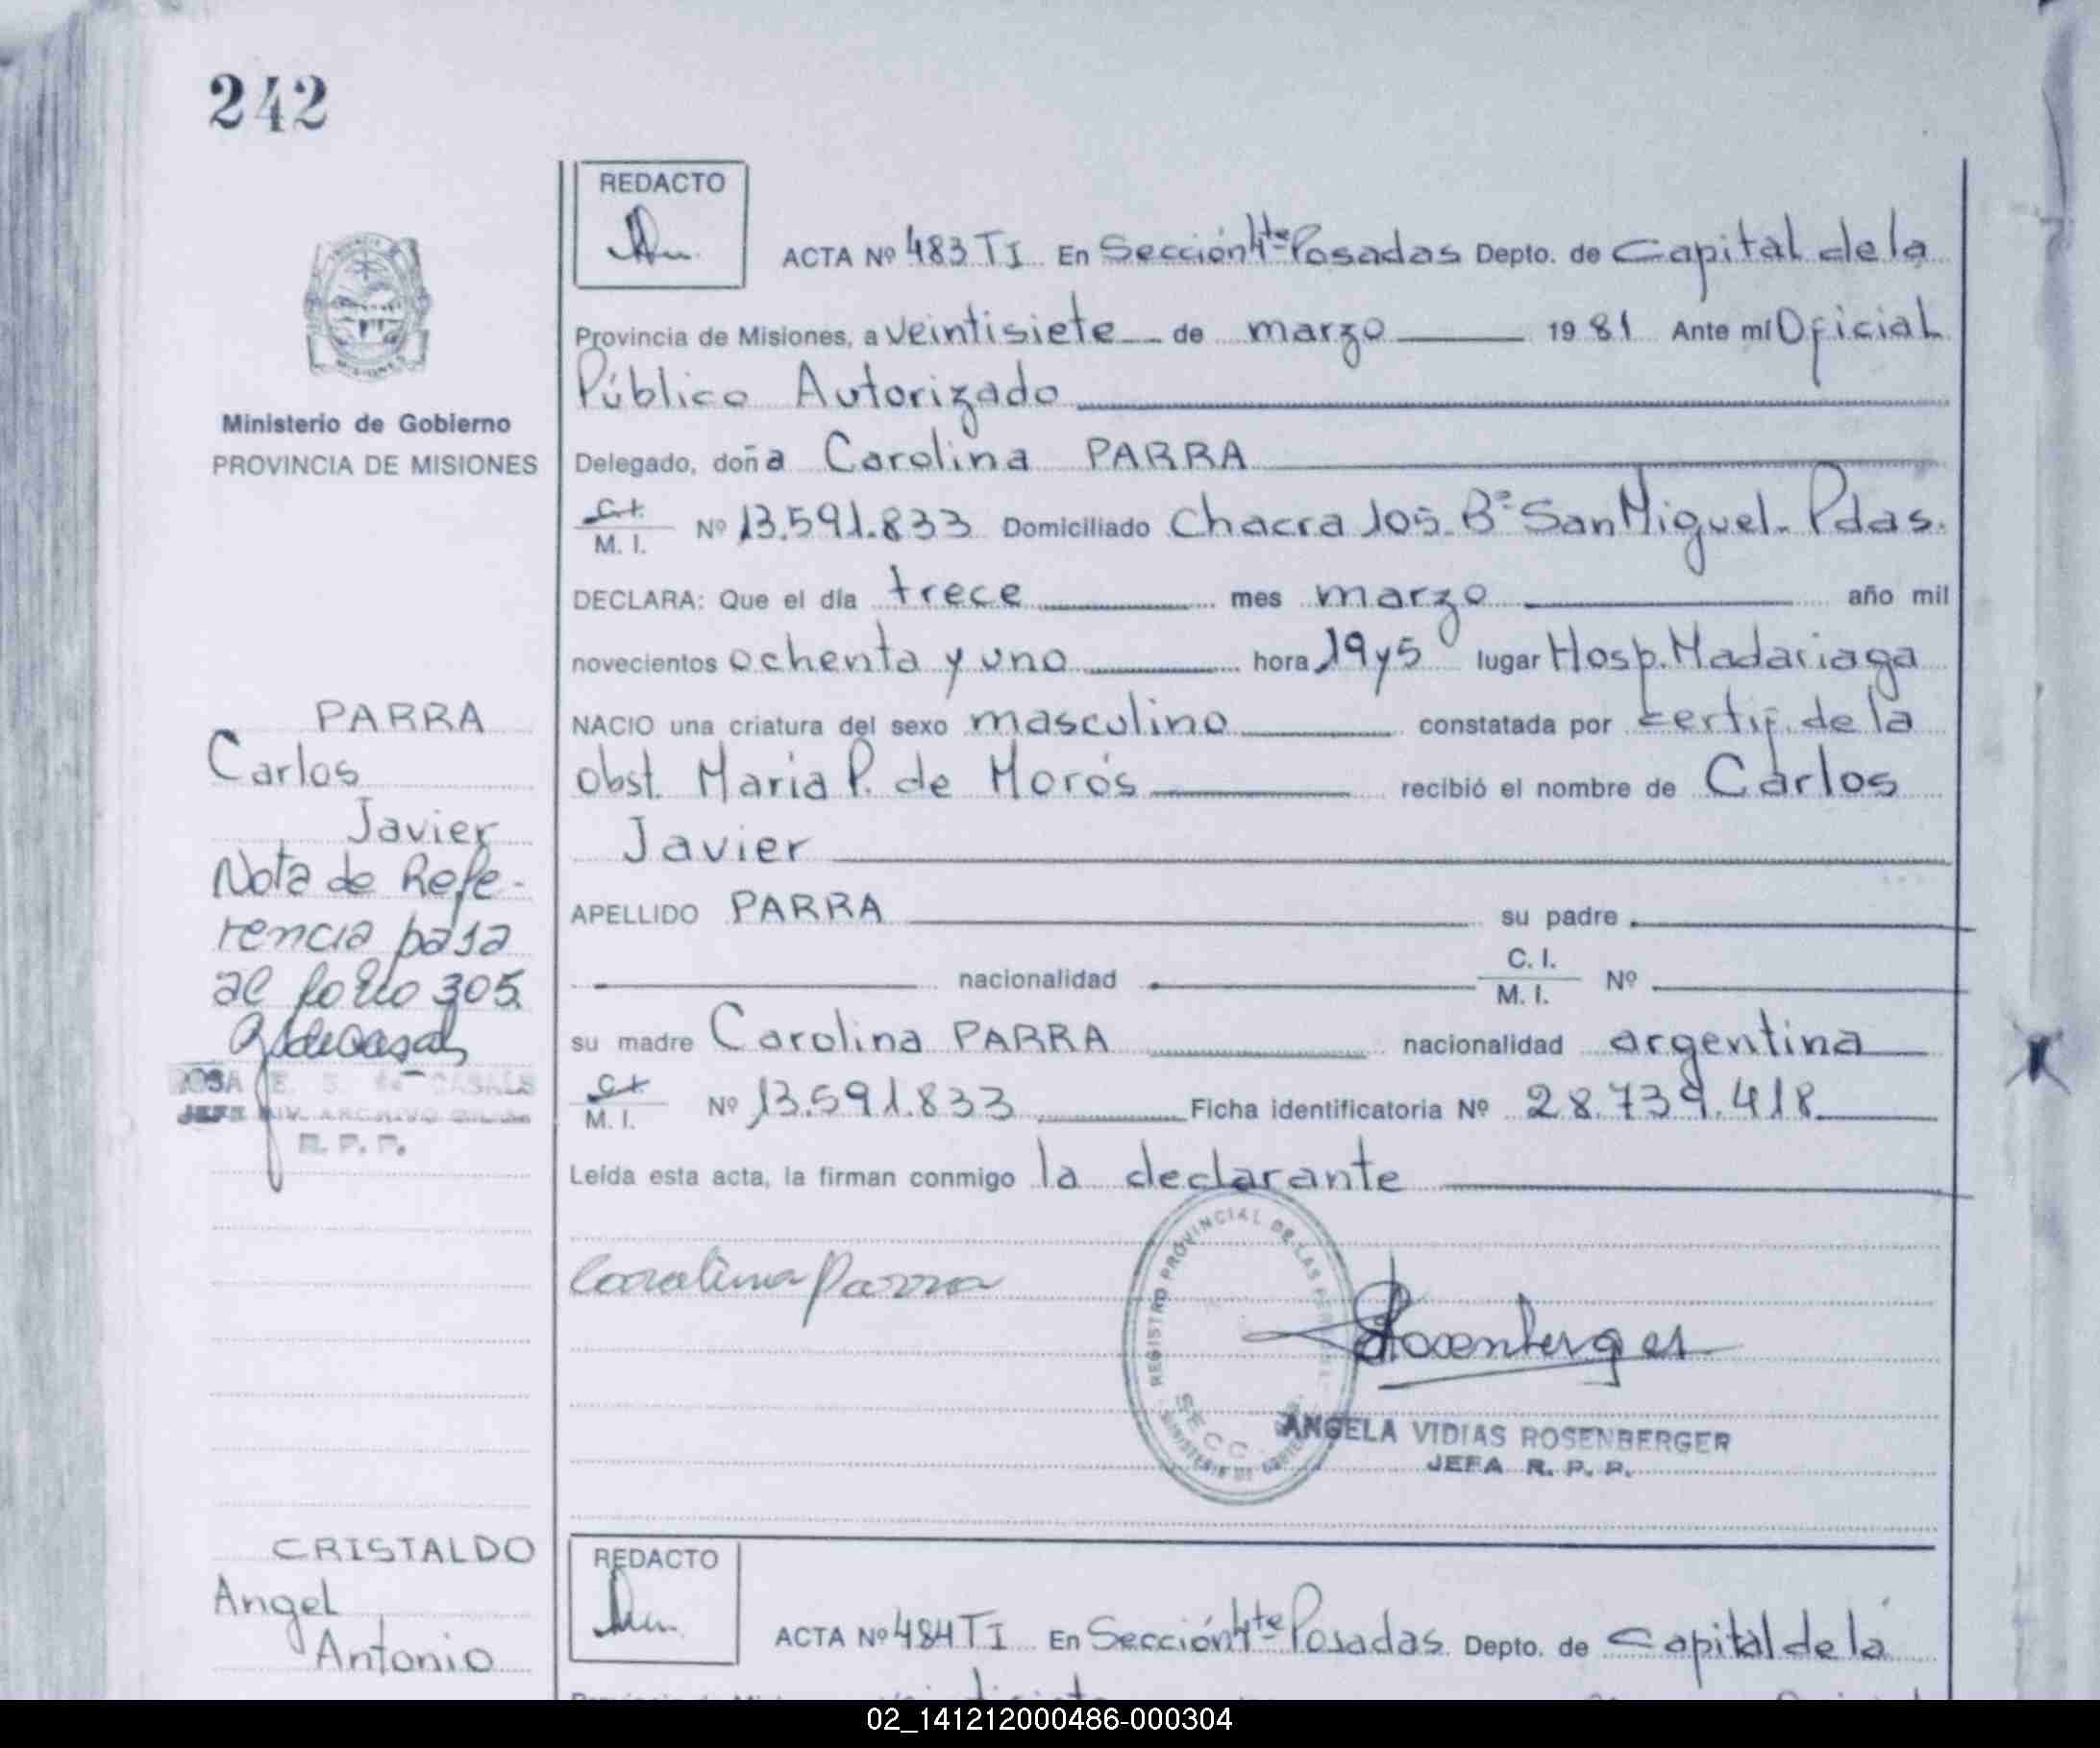 242
REDACTO
ACTA Nº 483 TI En Sección 4te Posadas Depto. de Capital de la
Provincia de Misiones, a veintisiete de marzo 1981 Ante mí Oficial
Público Autorizado
Ministerio de Gobierno
PROVINCIA DE MISIONES
Delegado, doña Carolina PARRA
C.I.
M. I. Nº 13.591.833 Domiciliado Chacra 105. Bº San Miguel. Pdas.
DECLARA: Que el día trece mes marzo año mil
novecientos ochenta y uno hora 19 y 5 lugar Hosp. Madariaga
NACIO una criatura del sexo masculino constatada por certif. de la
obst. Maria P. de Morós recibió el nombre de Carlos
Javier
APELLIDO PARRA su padre
nacionalidad C. I.
M. I. Nº
su madre Carolina PARRA nacionalidad argentina
C.I.
M. I. Nº 13.591.833 Ficha identificatoria Nº 28.739.418
Leída esta acta, la firman conmigo la declarante
PARRA
Carlos
Javier
Nota de Refe-
rencia pasa
al folio 305.
ROSA E. S. de CASALS
JEFE DIV. ARCHIVO GRAL.
R. P. P.
Carolina Parra
Rosenberger
REGISTRO PROVINCIAL DE LAS PERSONAS
SECC.
MINISTERIO DE GOBIERNO
ANGELA VIDIAS ROSENBERGER
JEFA R. P. P.
CRISTALDO
Angel
Antonio
REDACTO
ACTA Nº 484 TI En Sección 4te Posadas Depto. de Capital de la
02_141212000486-000304